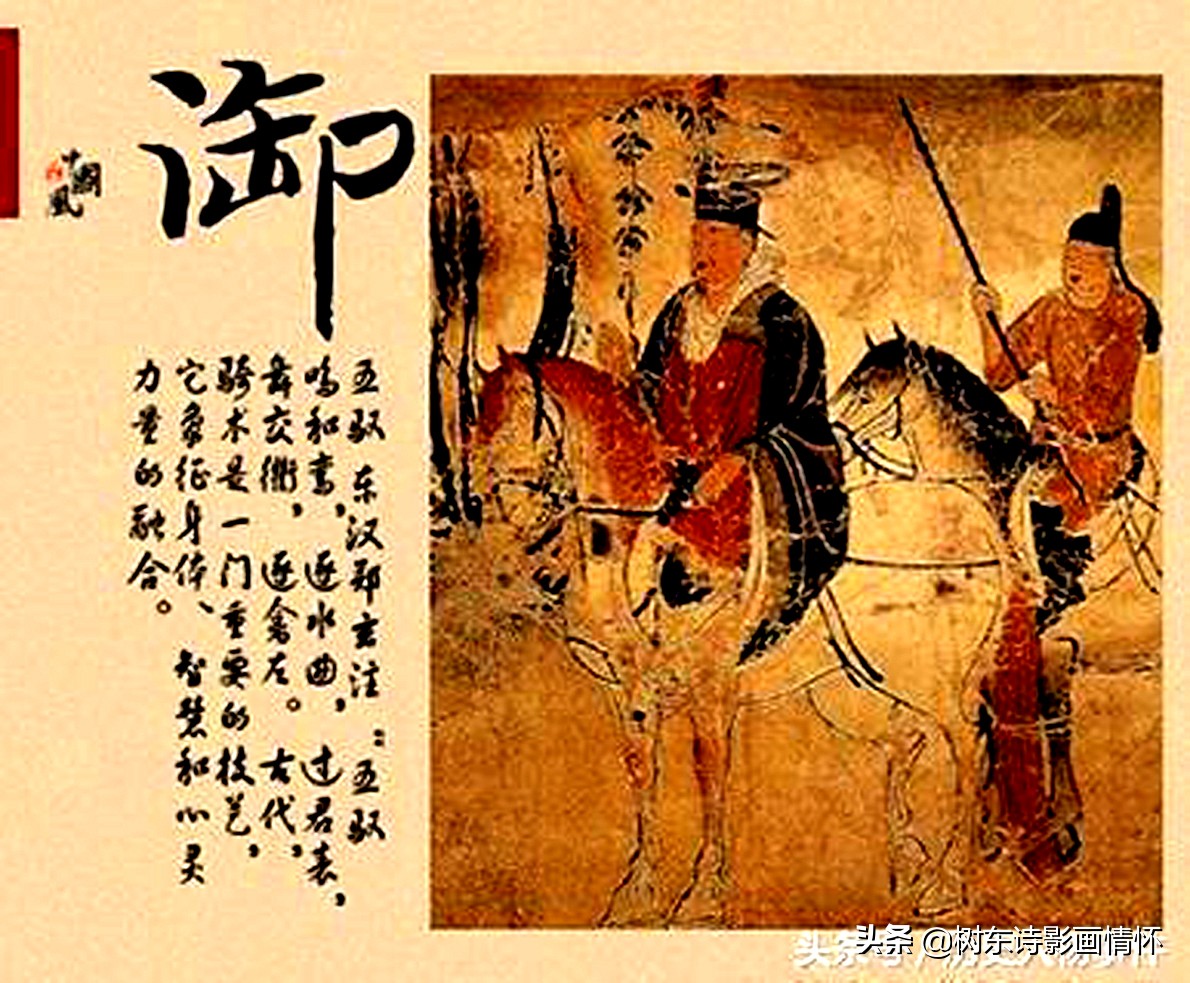 御
中國風
五驭 东汉郑玄注：五驭
鸣和鸾，逐水曲，过君表，
舞交衢，逐禽左。古代，
骑术是一门重要的技艺，
它象征身体、智慧和心灵
力量的融合。
头条 @树东诗影画情怀